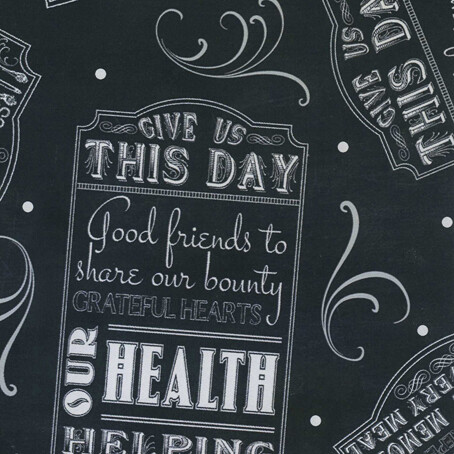 GIVE US
THIS DAY
Good friends to
share our bounty
GRATEFUL HEARTS
OUR
HEALTH
HELPING
GIVE US
THIS DAY
VERY
MEMO
MEAL